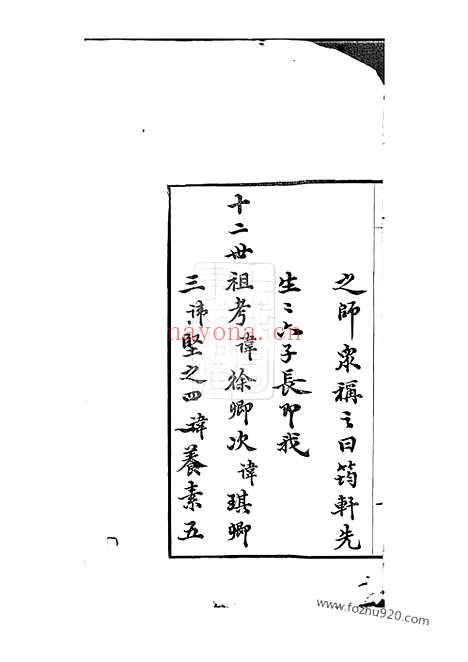 之師衆稱之曰筠軒先
生〻六子長即我
十二世祖考諱徐卿次諱琪卿
三諱堅之四諱養素五
nayona.cn
www.fozhu920.com